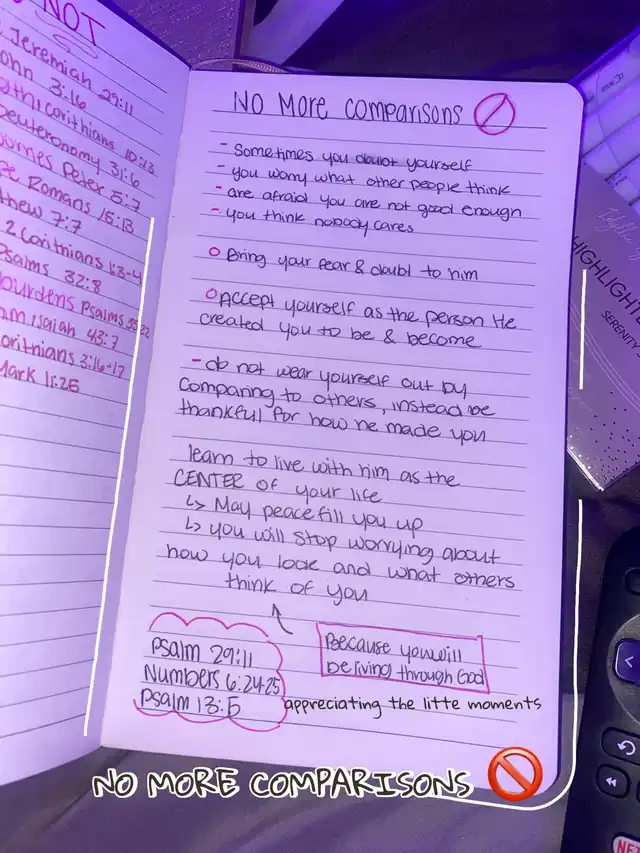 NOT
Jeremiah 29:11
John 3:16
corithians 10:13
Deuteronomy 31:6
James Peter 5:7
Romans 15:13
Matthew 7:7
2 Corinthians 1:3-4
Psalms 32:8
burdens Psalms 55:22
Isaiah 43:7
corithians 3:16-17
Mark 11:25
NO More comparisons
- Sometimes you doubt yourself
- you worry what other people think
- are afraid you are not good enough
- you think nobody cares
Bring your fear & doubt to him
Accept yourself as the person He
created you to be & become
- do not wear yourself out by
comparing to others, instead be
thankful for how he made you
learn to live with him as the
CENTER of your life
↳ May peace fill you up
↳ you will stop worrying about
how you look and what others
think of you
Because you will
be living through God
Psalm 29:11
Numbers 6:24-25
Psalm 13:5
appreciating the litte moments
NO MORE COMPARISONS
HIGHLIGHT
SERENITY